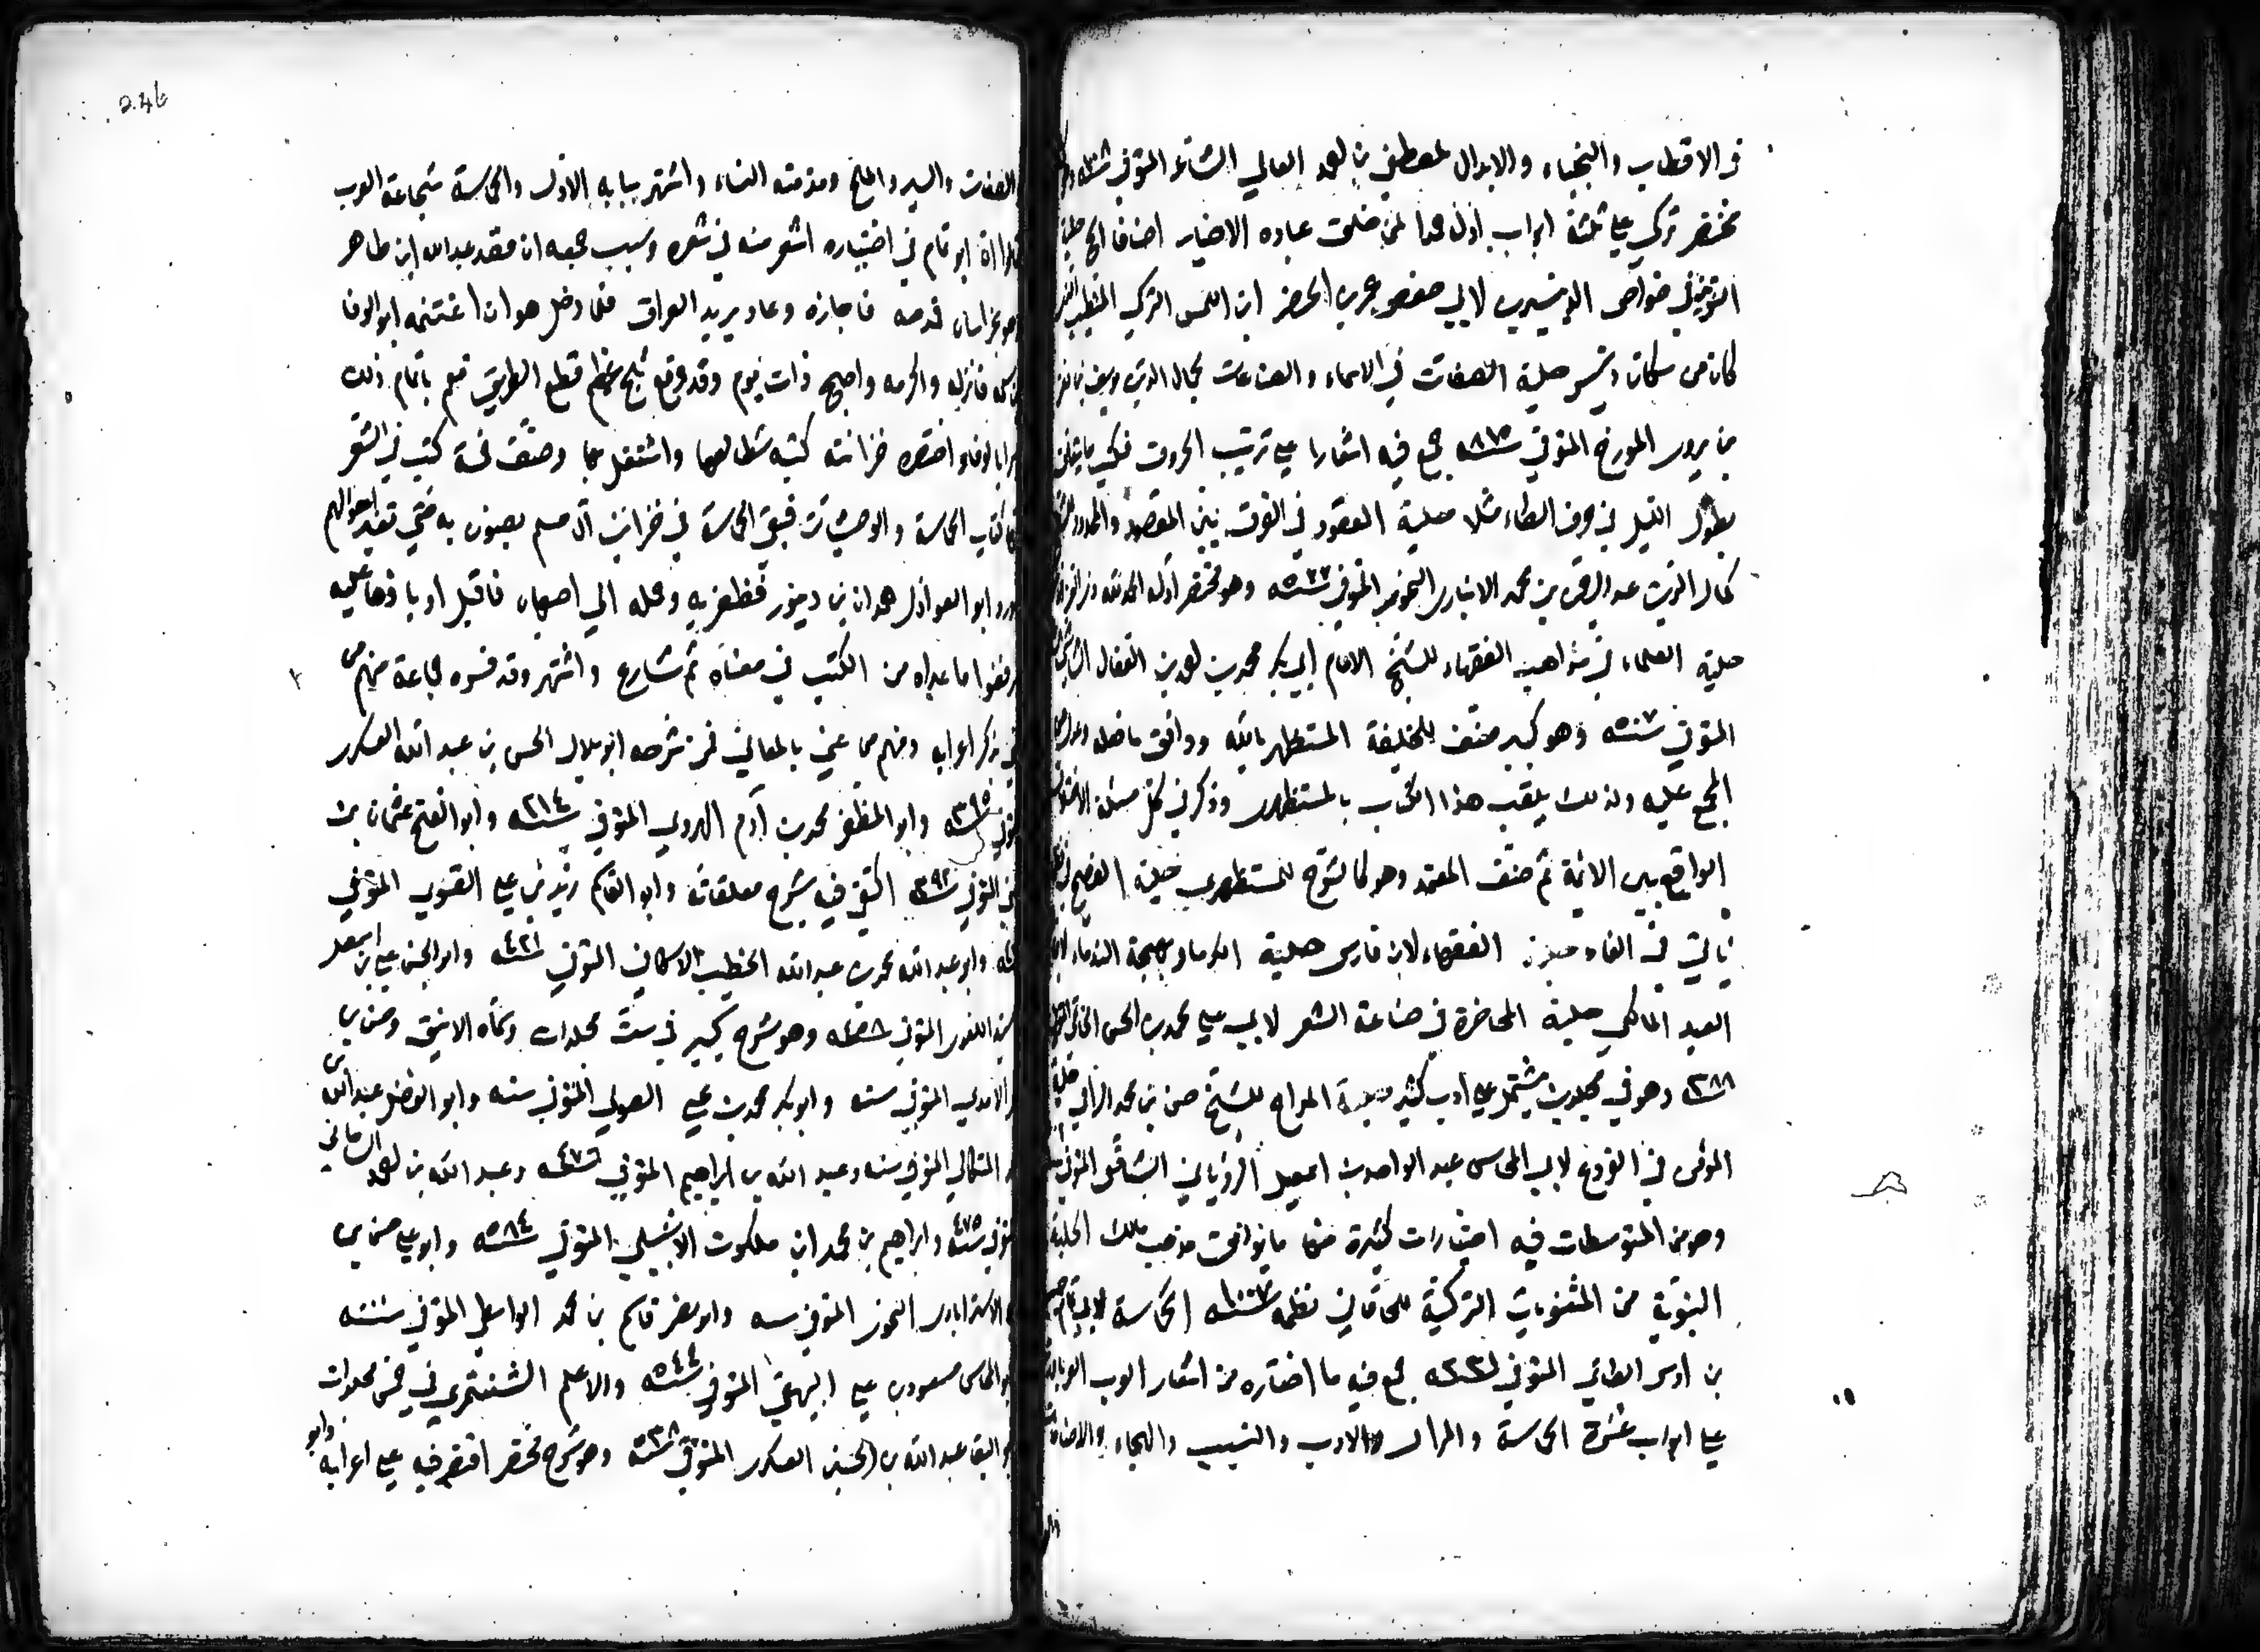 في الاقطاب والنجباء والابدال لمصطفى بن احمد العالي الشاعر المتوفى سنه
مختصر تركي على ثلثة ابواب اوله حمدا لمن خلق عباده الاخيار اضافا الخ حلية
لابي حفص عمر بن الخضر ابن اللمس التركي
كان من سكان دنيسر حلية الصفات في الاسماء والصناعات لجمال الدين يوسف بن تغري
بن بردى المورخ المتوفى سنه جمع فيه اشعارا على ترتيب الحروف فذكر ما يتعلق
بطول الليل في حرف الطاء مثلا حلية العقود في الفرق بين المقصور والممدود
كمال الدين عبد الرحمن بن محمد الانبارى النحوى المتوفى سنه ٥٧٧ وهو مختصر اوله الحمد لله
حلية العلماء في مذاهب الفقهاء للشيخ الامام ابي بكر محمد بن احمد بن القفال الشاشي
المتوفى سنه ٥٠٧ وهو كبير صنف للخليفة المستظهر بالله ووافق
المجمع عليه ولذلك يلقب هذا الكتاب بالمستظهرى وذكر في كل مسئلة الاختلاف
الواقع بين الائمة ثم صنف المعتمد وهو كالشرح للمستظهرى حلية الفصيح
ياتي في الفاء حلية الفقهاء لابن فارس حلية الكرماء وبهجة الندماء
العبد المالكي حلية المحاضرة في صناعة الشعر لابي علي محمد بن الحسن الحاتمي
٣٨٨ وهو في مجلدين مشتمل على ادب كثير حلية المداح للشيخ حسن بن محمد الرامي حلية
المؤمن في الفروع لابي المحاسن عبد الواحد بن اسمعيل الرؤياني الشافعي المتوفى
وهو من المتوسطات فيه اختيارات كثيرة منها ما يوافق مذهب مالك الحلية
النبوية من المثنويات التركية للخاقاني نظمه سنه ١٠٠٧ الحماسة لابي تمام حبيب
بن اوس الطائي المتوفى سنه ٢٣١ جمع فيه ما اختاره من اشعار العرب العرباء
على ابواب عشرة الحماسة والمراثى والادب والنسيب والهجاء والاضافات
والصفات والسير والملح ومذمة النساء واشتهر ببابه الاول والحماسة شجاعة العرب
قالوا ان ابو تمام في اختياره اشعر منه في شعره وسبب جمعه انه قصد عبد الله ابن طاهر
وهو بخراسان فمدحه فاجازه وعاد يريد العراق فلما دخل همدان اغتنمه ابو الوفا
بن سلمه فانزله واكرمه واصبح ذات يوم وقد وقع ثلج عظيم قطع الطريق فغم باتمام ذلك
وسر ابا الوفا واحضره خزانة كتبه فطالعها واشتغل بها وصنف خمسة كتب في الشعر
منها كتاب الحماسة والوحشيات فبقى الحماسة في خزانة آل سلمه يضنون به حتى تغير احوالهم
وورد ابو العواذل همدان من دينور فظفر به وحمله الى اصبهان فاقبل ادباؤها عليه
ورفضوا ما عداه من الكتب في معناه ثم شارع واشتهر وقد فسره جماعة فمنهم من
عني بذكر اعرابه ومنهم من عني بالمعاني فمن شرحه ابو هلال الحسن بن عبد الله العسكرى
المتوفى سنه ٣٩٥ وابو المظفر محمد بن آدم الهروي المتوفى سنه ٤١٤ وابو الفتح عثمان بن
جني المتوفى سنه ٣٩٢ اكتفى فيه بشرح مغلقاته وابو القاسم زيد بن علي الفسوي المتوفى
وابو عبد الله محمد بن عبد الله الخطيب الاسكافي المتوفى سنه ٤٢١ وابو الحسن علي بن اسمعيل
سيده اللغوى المتوفى سنه ٤٥٨ وهو شرح كبير في ست مجلدات وسماه الانيق وحسن بن
بشر الامدي المتوفى سنه وابو بكر محمد بن يحي الصولي المتوفى سنه وابو الفضل عبد الله بن
احمد الميكالي المتوفى سنه وعبد الله بن ابراهيم المتوفى سنه ٤٧٦ وعبد الله بن احمد الساماني
المتوفى سنه ٤٧٥ وابراهيم بن محمد ابن ملكون الاشبيلي المتوفى سنه ٥٨٤ وابو علي حسن بن
الاسترابادى النحوى المتوفى سنه وابو نصر قاسم بن محمد الواسطي المتوفى سنه
وابو المحاسن مسعود بن علي البيهقي المتوفى سنه ٥٤٤ والاعلم الشنتمري في خمس مجلدات
وابو البقا عبد الله بن الحسين العكبرى المتوفى سنه ٥٣٨ وهو شرح مختصر اقتصر فيه على اعرابه وابو